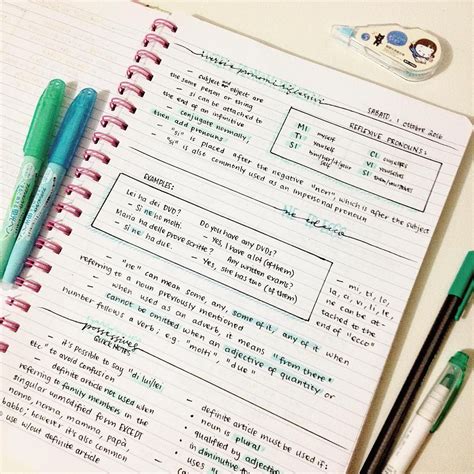 SABATO, 1 ottobre 2016
- subject and object are
the same person or thing
- si can be attached to
the end of an infinitive
- conjugate normally,
then add pronouns
- "si" is placed after the negative "non" which is after the subject
- "si" is also commonly used as an impersonal pronoun
REFLEXIVE PRONOUNS:
MI myself
TI yourself
SI
CI ourselves
VI yourselves
SI themselves
EXAMPLES:
Lei ha dei DVD? Do you have any DVDs?
- Sì ne ho molti. - Yes, I have a lot (of them)
Maria ha delle prove scritte? Any written exams?
- Sì ne ha due. - Yes, she has two (of them)
- mi, ti, le,
la, ci, vi, le,
ne can be at-
tached to the
end of "ecco"
- "ne" can mean some, any, some of it, any of it when
referring to a noun previously mentioned
- when used as an adverb, it means "from there"
- cannot be omitted when an adjective of quantity or
number follows a verb; e.g. "molti", "due"
possessives
QUICK NOTES
- it's possible to say "di lui/lei
etc" to avoid confusion
- definite article not used when
referring to family members in the
singular unmodified form EXCEPT
nonno, nonna, mamma, papà,
babbo; however it's also common
to use w/out definite article
- definite article must be used if:
• noun is plural
• qualified by adjective
• in diminutive
• uses